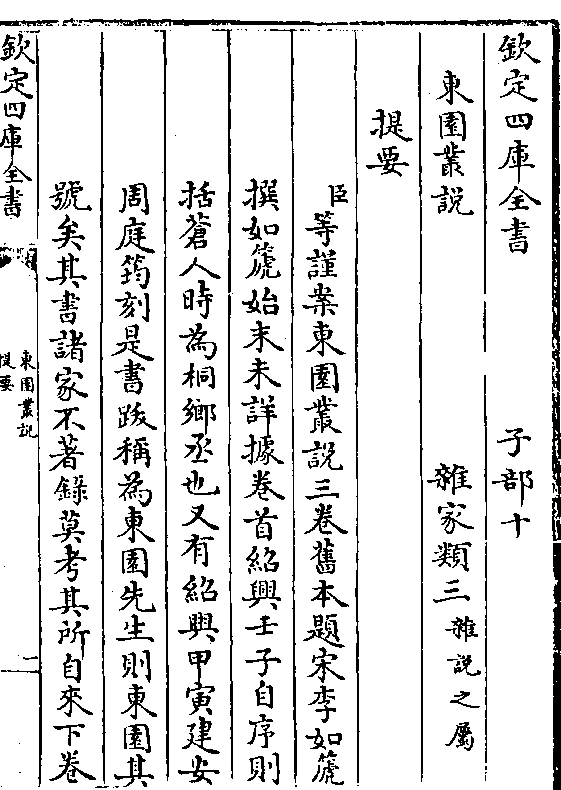 欽定四庫全書 子部十
東園叢説 雜家類三雜説之屬
提要
臣等謹案東園叢説三卷舊本題宋李如箎
撰如箎始末未詳據卷首紹興壬子自序則
括蒼人時為桐鄉丞也又有紹興甲寅建安
周庭筠刻是書跋稱為東園先生則東園其
號矣其書諸家不著錄莫考其所自來下卷
欽定四庫全書
東園叢説
提要
一